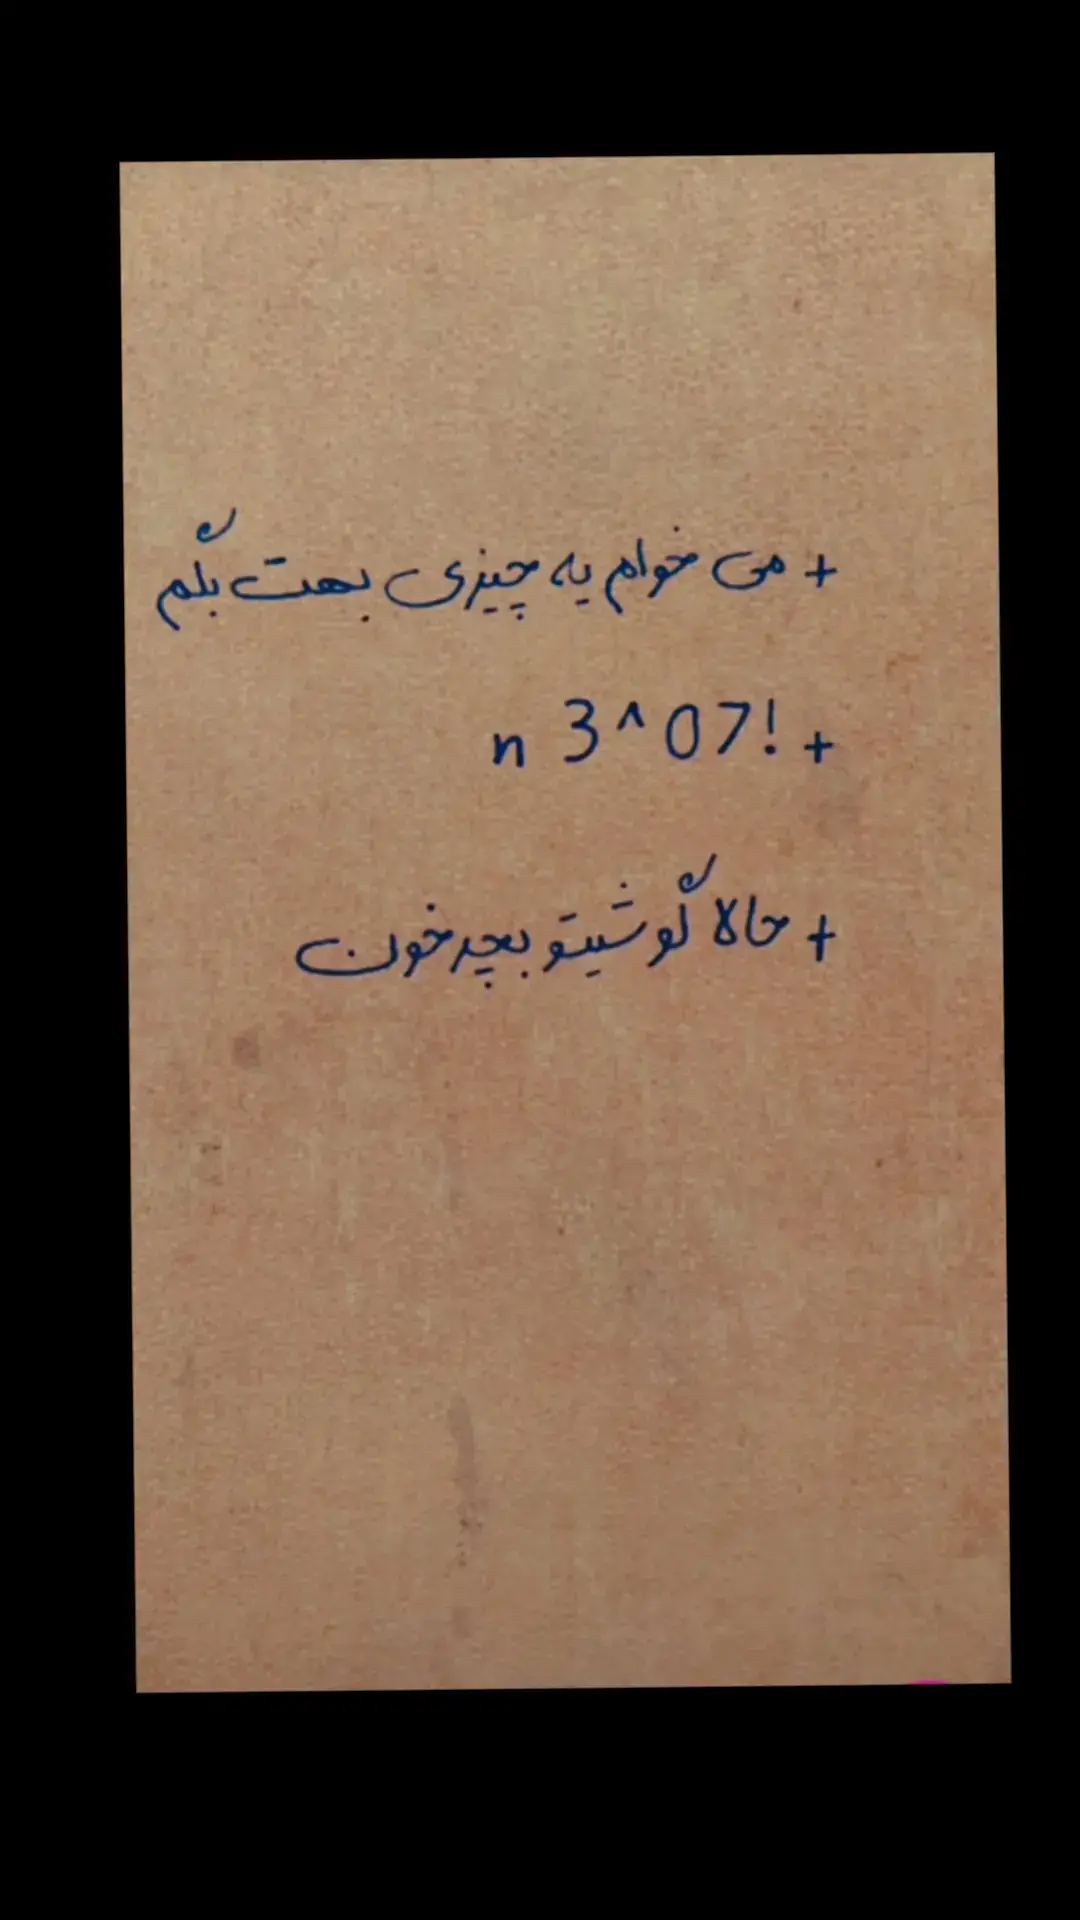 + می خوام یه چیزی بهت بگم
+ n 3^07!
+ حالا گوشیتو بچرخون